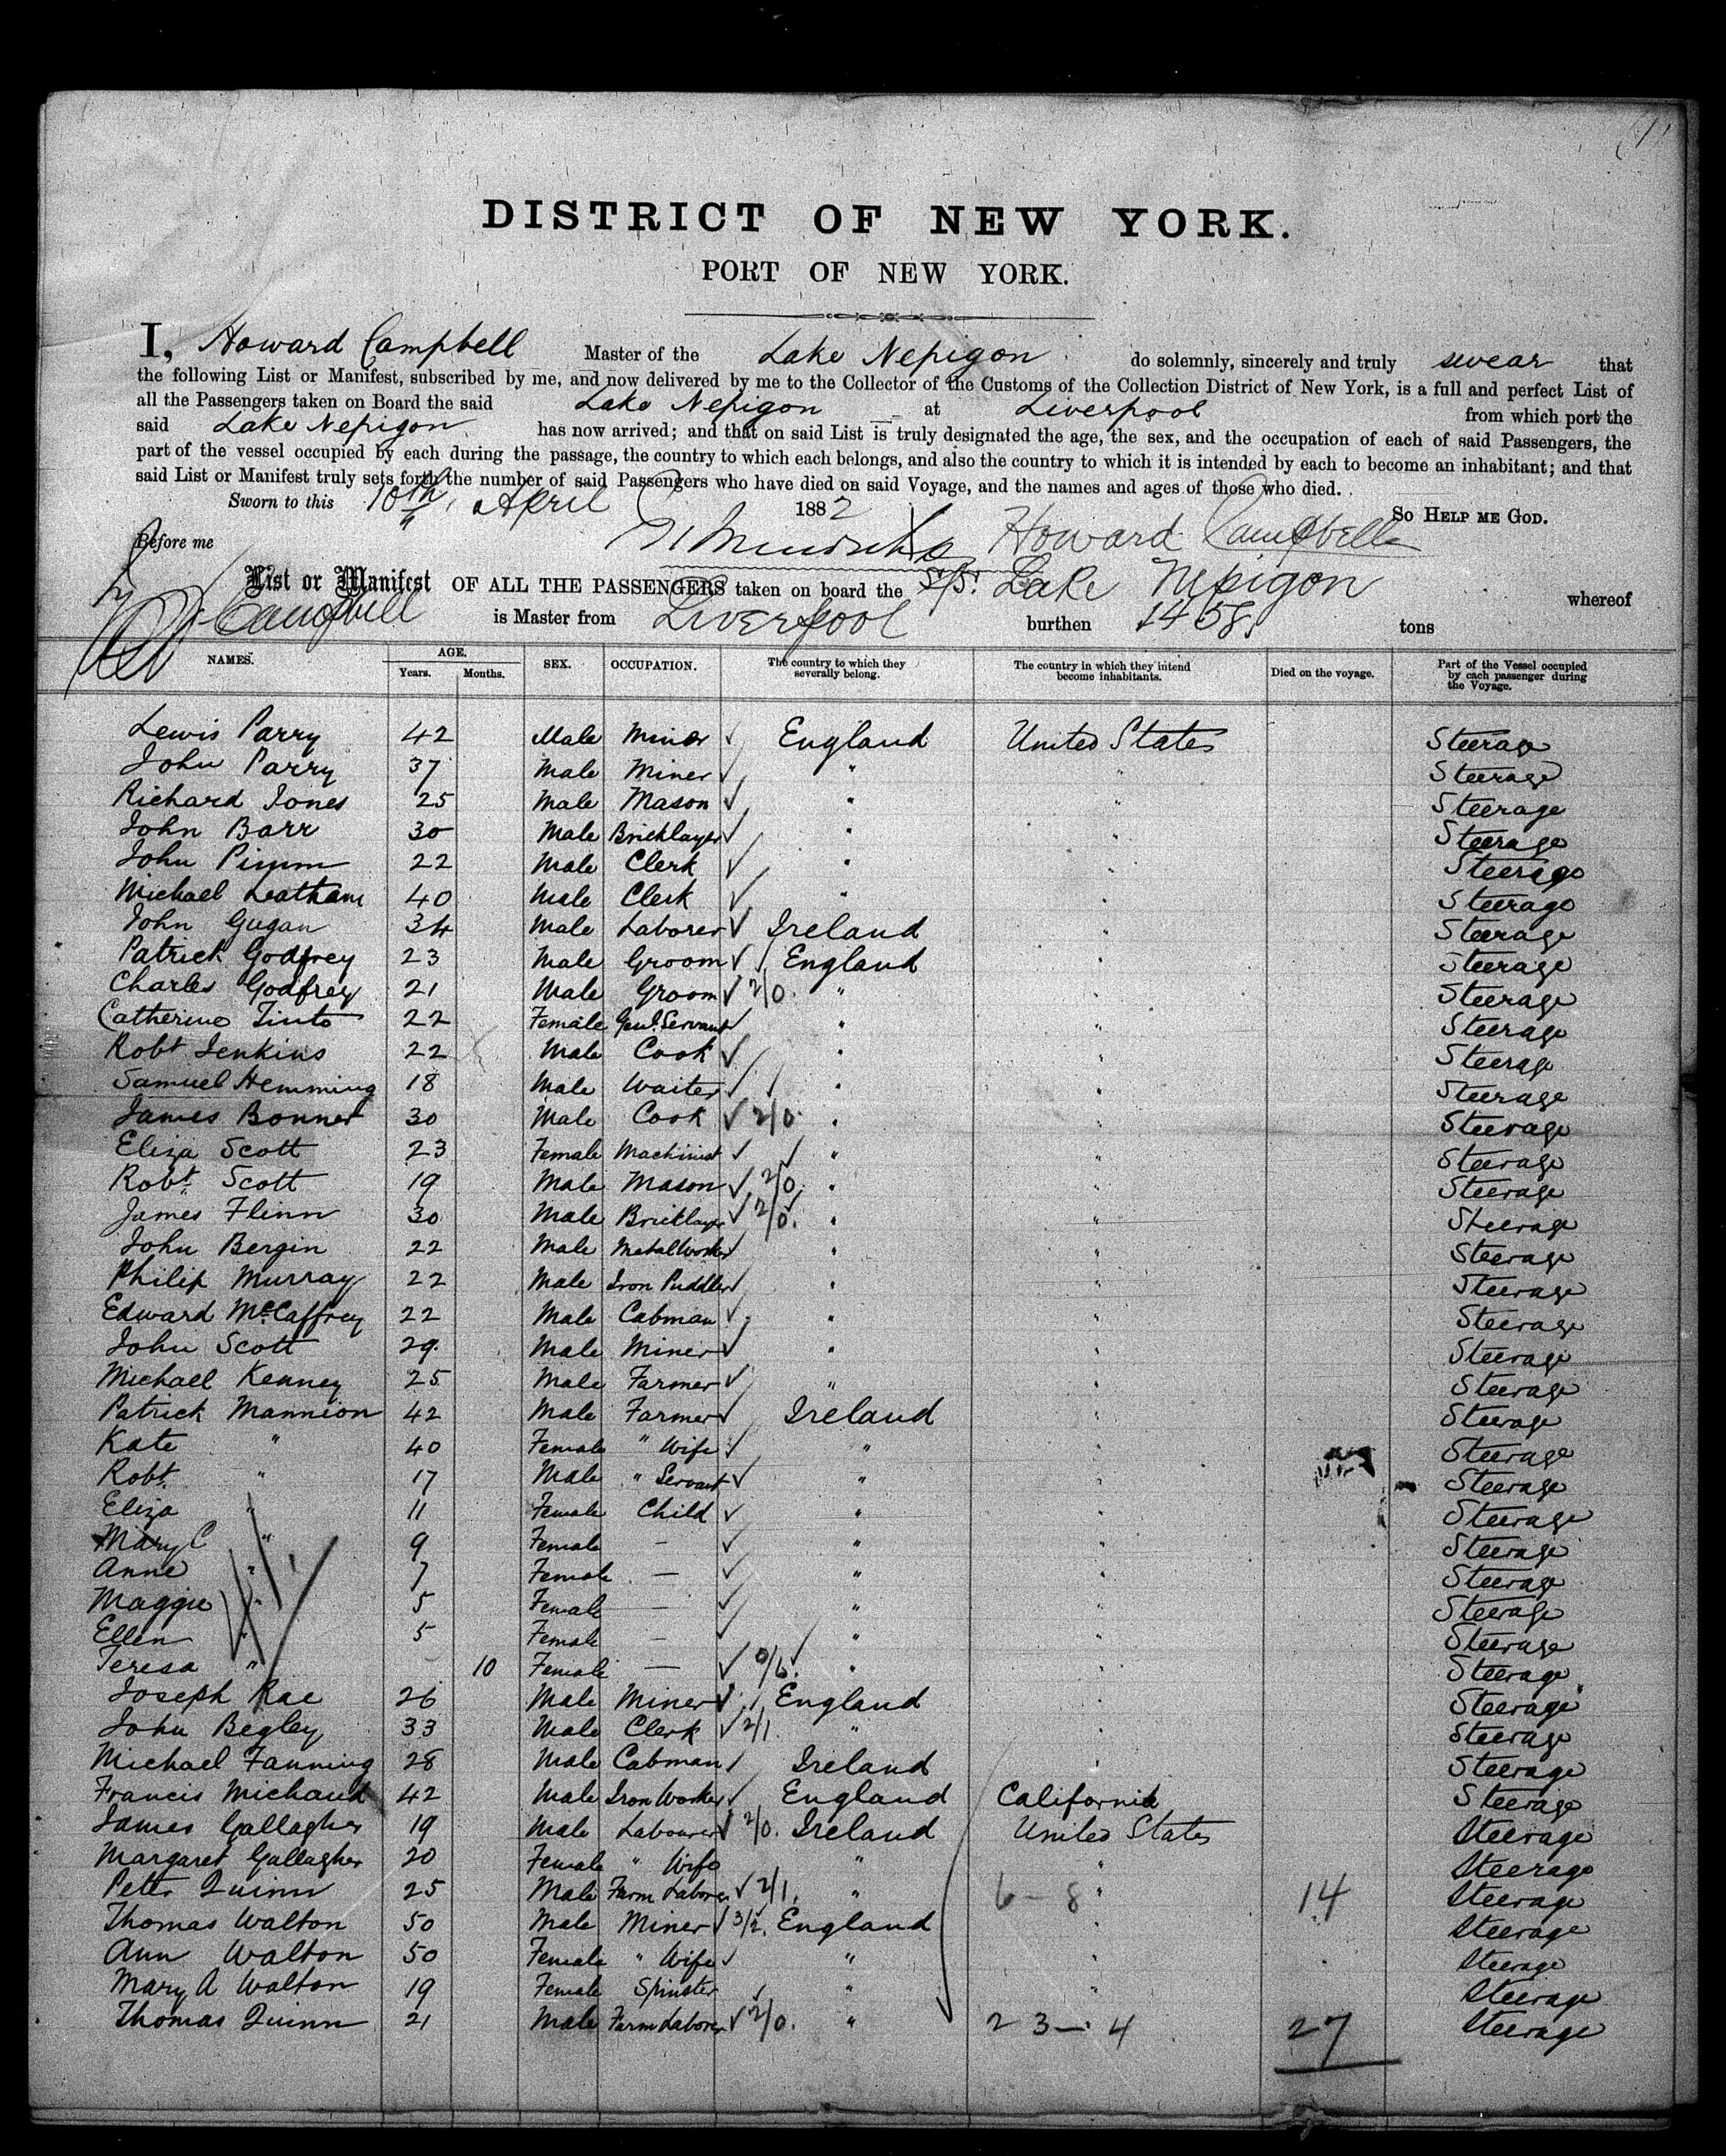 DISTRICT OF NEW YORK.
PORT OF NEW YORK.
I, Howard Campbell Master of the Lake Nepigon do solemnly, sincerely and truly swear that
the following List or Manifest, subscribed by me, and now delivered by me to the Collector of the Customs of the Collection District of New York, is a full and perfect List of
all the Passengers taken on Board the said Lake Nepigon at Liverpool from which port the
said Lake Nepigon has now arrived; and that on said List is truly designated the age, the sex, and the occupation of each of said Passengers, the
part of the vessel occupied by each during the passage, the country to which each belongs, and also the country to which it is intended by each to become an inhabitant; and that
said List or Manifest truly sets forth the number of said Passengers who have died on said Voyage, and the names and ages of those who died.
Sworn to this 10th April 1882 So HELP ME GOD.
Before me Howard Campbell
List or Manifest OF ALL THE PASSENGERS taken on board the S/S. Lake Nepigon whereof
Campbell is Master from Liverpool burthen 1458 tons
NAMES. AGE. Years. Months. SEX. OCCUPATION. The country to which they severally belong. The country in which they intend become inhabitants. Died on the voyage. Part of the Vessel occupied by each passenger during the Voyage.
Lewis Parry 42 Male Miner England United States Steerage
John Parry 37 Male Miner " " Steerage
Richard Jones 25 Male Mason " " Steerage
John Barr 30 Male Bricklayer " " Steerage
John Pimm 22 Male Clerk " " Steerage
Michael Leatham 40 Male Clerk " " Steerage
John Gugan 34 Male Laborer Ireland " Steerage
Patrick Godfrey 23 Male Groom England " Steerage
Charles Godfrey 21 Male Groom 2/0. " " Steerage
Catherine Tinto 22 Female Genl. Servant " " Steerage
Robt Jenkins 22 Male Cook " " Steerage
Samuel Hemming 18 Male Waiter " " Steerage
James Bonner 30 Male Cook 2/0. " " Steerage
Eliza Scott 23 Female Machinist " " Steerage
Robt. Scott 19 Male Mason 2/0. " " Steerage
James Flinn 30 Male Bricklayer 2/0. " " Steerage
John Bergin 22 Male Metal Worker " " Steerage
Philip Murray 22 Male Iron Puddler " " Steerage
Edward McCaffrey 22 Male Cabman " " Steerage
John Scott 29. Male Miner " " Steerage
Michael Kenney 25 Male Farmer " " Steerage
Patrick Mannion 42 Male Farmer Ireland " Steerage
Kate " 40 Female " Wife " " Steerage
Robt. " 17 Male " Servant " " Steerage
Eliza " 11 Female Child " " Steerage
Mary C " 9 Female - " " Steerage
Anne " 7 Female — " " Steerage
Maggie " 5 Female — " " Steerage
Ellen " 5 Female — " " Steerage
Teresa " 10 Female — 0/6. " " Steerage
Joseph Rae 26 Male Miner England " Steerage
John Begley 33 Male Clerk 2/1. " " Steerage
Michael Fanning 28 Male Cabman Ireland " Steerage
Francis Michaud 42 Male Iron Worker England California Steerage
James Gallagher 19 Male Labourer 2/0. Ireland United States Steerage
Margaret Gallagher 20 Female " Wife " " Steerage
Peter Quinn 25 Male Farm Laborer 2/1. " 6-8 " 14 Steerage
Thomas Walton 50 Male Miner 3/2. England " Steerage
Ann Walton 50 Female " Wife " " Steerage
Mary A Walton 19 Female Spinster " " Steerage
Thomas Quinn 21 Male Farm Laborer 2/0. " 23-4 27 Steerage